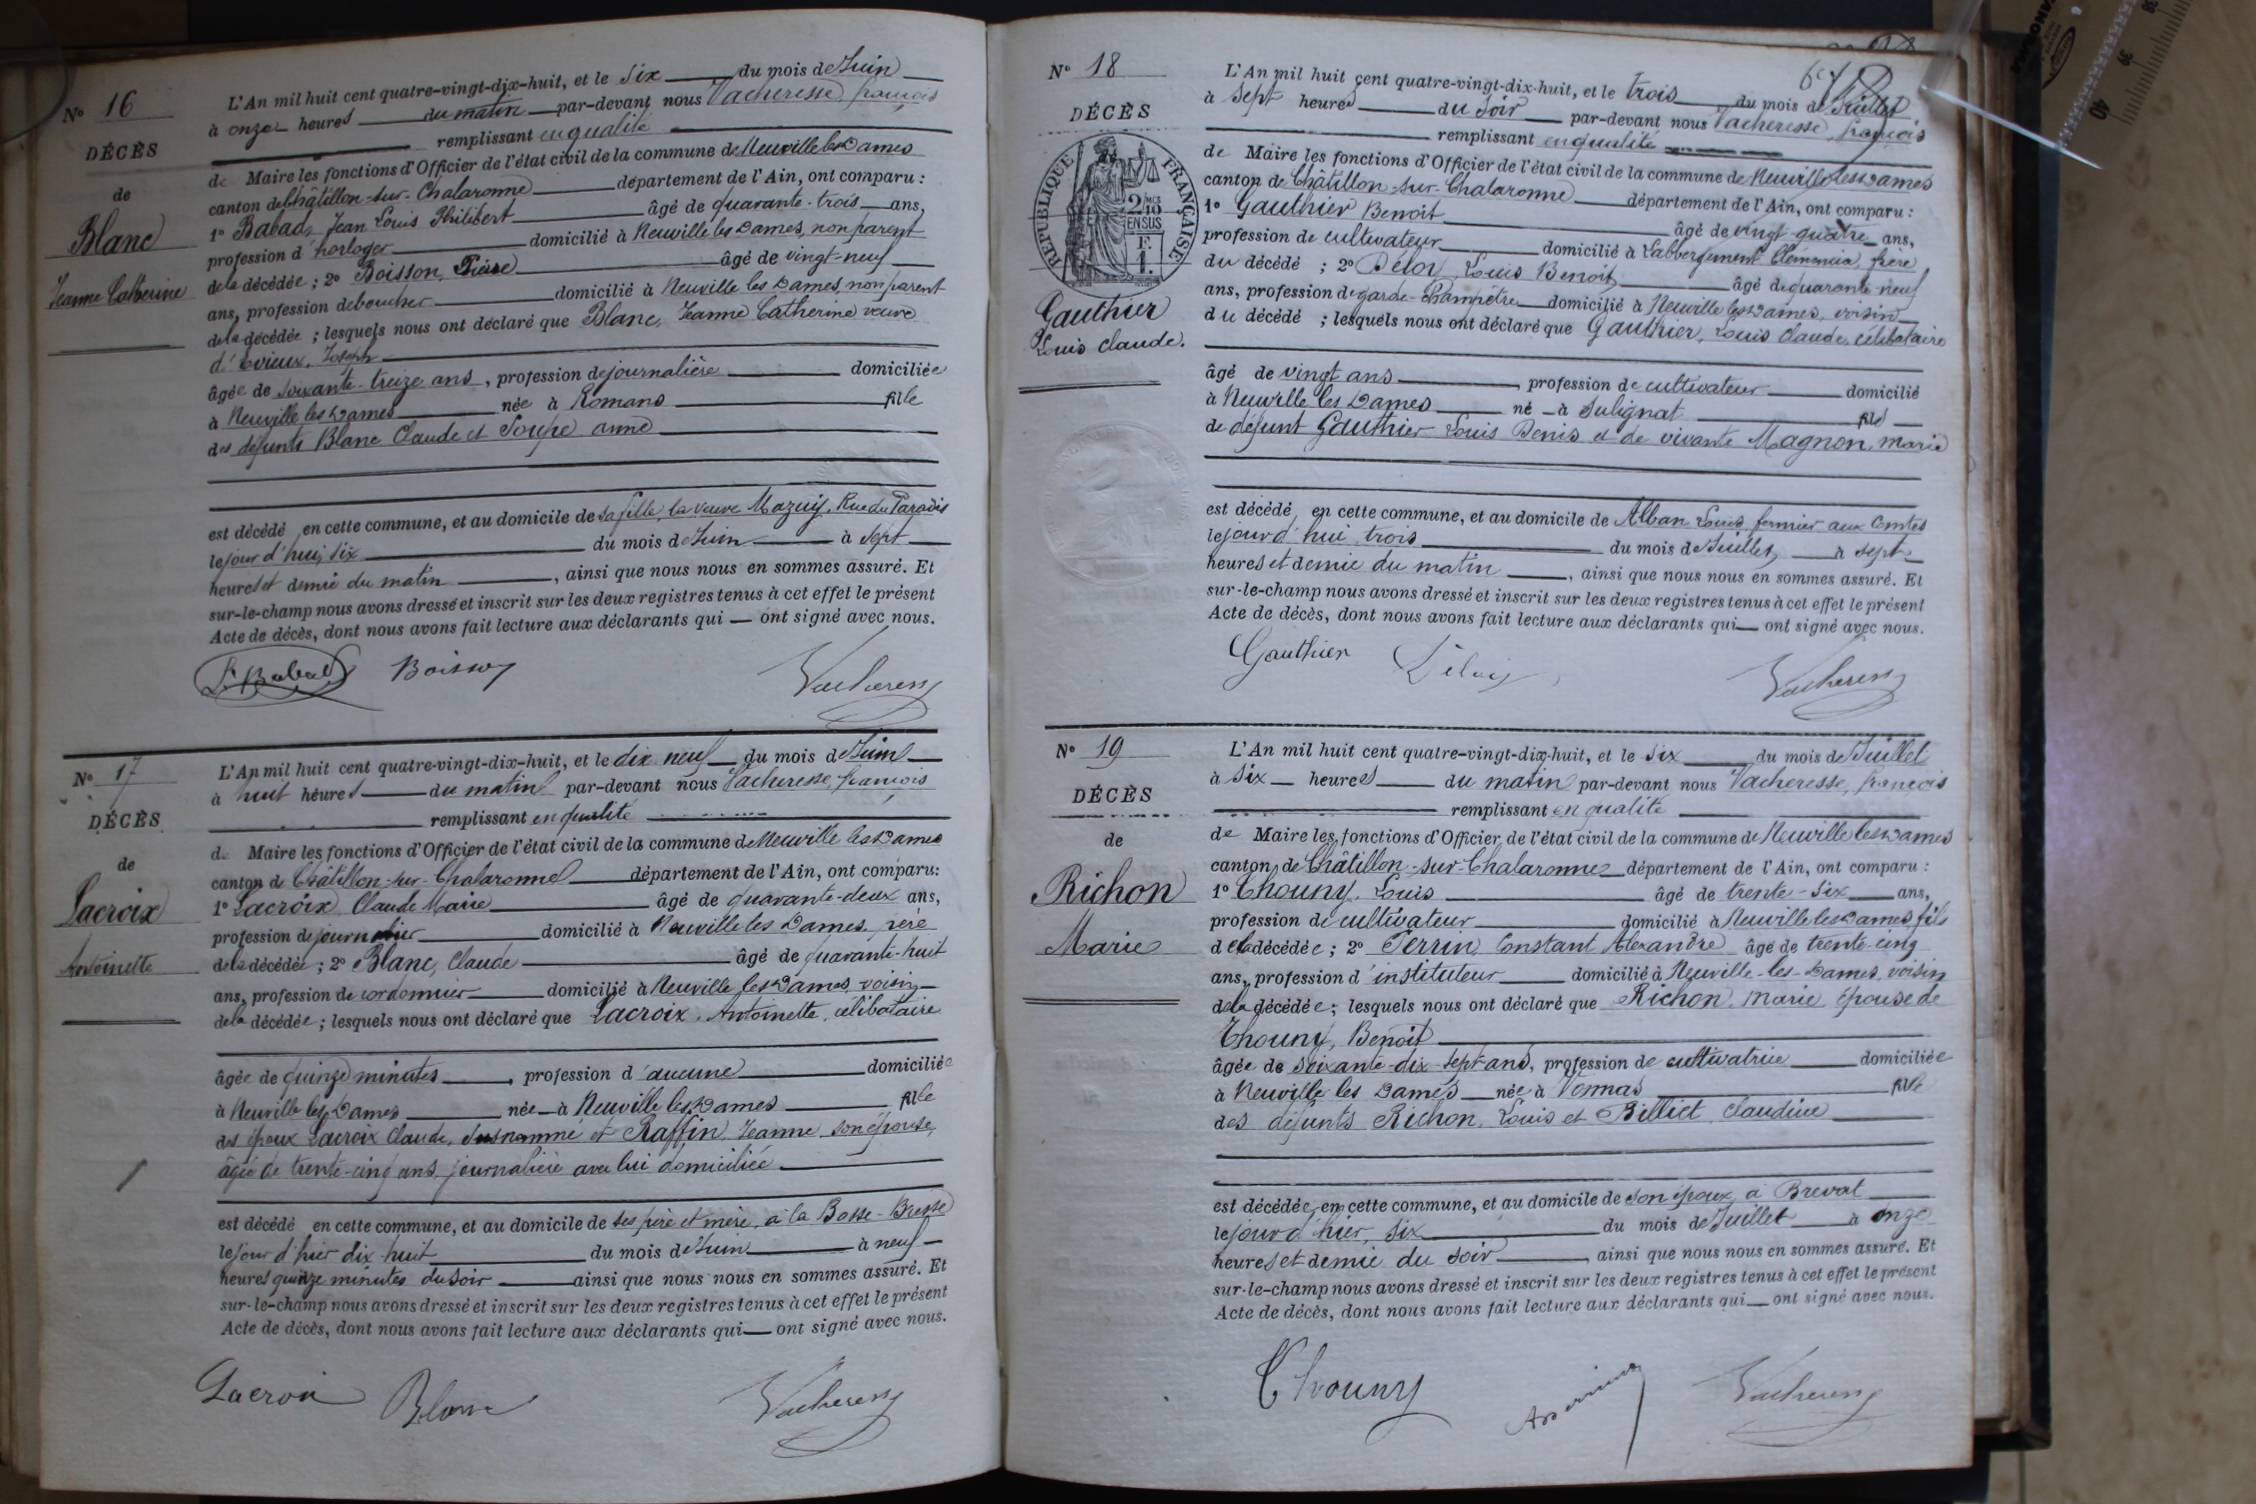 N° 16
DÉCÈS
de
Blanc
Jeanne Catherine
L'An mil huit cent quatre-vingt-dix-huit, et le six du mois de Juin
à onze heures du matin par-devant nous Vacheresse françois
remplissant en qualité
de Maire les fonctions d'Officier de l'état civil de la commune de Neuville les Dames
canton de Châtillon-sur-Chalaronne département de l'Ain, ont comparu :
1° Babad, Jean Louis Philibert âgé de quarante-trois ans,
profession d'horloger domicilié à Neuville les Dames, non parent
de la décédée ; 2° Boisson, Pierre âgé de vingt-neuf
ans, profession de boucher domicilié à Neuville les Dames, non parent
de la décédée ; lesquels nous ont déclaré que Blanc, Jeanne Catherine veuve
d'Evieux, Joseph
âgée de soixante-treize ans, profession de journalière domiciliée
à Neuville les Dames née à Romans fille
des défunts Blanc Claude et Soupe anne
est décédé en cette commune, et au domicile de sa fille, la veuve Mazuy, Rue du Paradis
le jour d'hui, six du mois de Juin à sept
heures et demie du matin, ainsi que nous nous en sommes assuré. Et
sur-le-champ nous avons dressé et inscrit sur les deux registres tenus à cet effet le présent
Acte de décès, dont nous avons fait lecture aux déclarants qui — ont signé avec nous.
L. Babad Boisson Vacheresse
N° 17
DÉCÈS
de
Lacroix
Antoinette
L'An mil huit cent quatre-vingt-dix-huit, et le dix neuf du mois de Juin
à huit heures du matin par-devant nous Vacheresse, françois
remplissant en qualité
de Maire les fonctions d'Officier de l'état civil de la commune de Neuville les Dames
canton de Châtillon-sur-Chalaronne département de l'Ain, ont comparu :
1° Lacroix Claude Marie âgé de quarante-deux ans,
profession de journalier domicilié à Neuville les Dames, père
de la décédée ; 2° Blanc, Claude âgé de quarante-huit
ans, profession de cordonnier domicilié à Neuville les Dames, voisin
de la décédée ; lesquels nous ont déclaré que Lacroix, Antoinette, célibataire
âgée de quinze minutes, profession d'aucune domiciliée
à Neuville les Dames née à Neuville les Dames fille
des époux Lacroix Claude, susnommé et Raffin, Jeanne son épouse,
âgée de trente-cinq ans, journalière avec lui domiciliée
est décédé en cette commune, et au domicile de ses père et mère, à la Basse-Bresse
le jour d'hier dix-huit du mois de Juin à neuf
heures quinze minutes du soir ainsi que nous nous en sommes assuré. Et
sur-le-champ nous avons dressé et inscrit sur les deux registres tenus à cet effet le présent
Acte de décès, dont nous avons fait lecture aux déclarants qui — ont signé avec nous.
Lacroix Blanc Vacheresse
N° 18
DÉCÈS
RÉPUBLIQUE FRANÇAISE
2/10 MES
EN SUS
F.
1.
Gauthier
Louis Claude.
L'An mil huit cent quatre-vingt-dix-huit, et le trois du mois de Juillet
à sept heures du soir par-devant nous Vacheresse, françois
remplissant en qualité
de Maire les fonctions d'Officier de l'état civil de la commune de Neuville les Dames
canton de Châtillon-sur-Chalaronne département de l'Ain, ont comparu :
1° Gauthier Benoit âgé de vingt-quatre ans,
profession de cultivateur domicilié à Labbergement Clemencia, frère
du décédé ; 2° Louis Benoit âgé de quarante-neuf
ans, profession de garde-Champêtre domicilié à Neuville les Dames, voisin
du décédé ; lesquels nous ont déclaré que Gauthier, Louis Claude, célibataire
âgé de vingt ans, profession de cultivateur domicilié
à Neuville les Dames né à Sulignat fils
de défunt Gauthier Louis Denis et de vivante Magnon, marie
est décédé en cette commune, et au domicile de Alban Louis, fermier aux Comtes
le jour d'hui trois du mois de Juillet, à sept
heures et demie du matin, ainsi que nous nous en sommes assuré. Et
sur-le-champ nous avons dressé et inscrit sur les deux registres tenus à cet effet le présent
Acte de décès, dont nous avons fait lecture aux déclarants qui — ont signé avec nous.
Gauthier Vacheresse
N° 19
DÉCÈS
de
Richon
Marie
L'An mil huit cent quatre-vingt-dix-huit, et le six du mois de Juillet
à six heures du matin par-devant nous Vacheresse, françois
remplissant en qualité
de Maire les fonctions d'Officier de l'état civil de la commune de Neuville les Dames
canton de Châtillon-sur-Chalaronne département de l'Ain, ont comparu :
1° Thouny, Louis âgé de trente-six ans,
profession de cultivateur domicilié à Neuville les Dames, fils
de la décédée ; 2° Perrin, Constant Alexandre âgé de trente-cinq
ans, profession d'instituteur domicilié à Neuville-les-Dames, voisin
de la décédée ; lesquels nous ont déclaré que Richon, marie, épouse de
Thouny, Benoit
âgée de soixante-dix-sept ans, profession de cultivatrice domiciliée
à Neuville les Dames née à Vonnas fille
des défunts Richon, Louis et Billiet, Claudine
est décédée en cette commune, et au domicile de son époux, à Brevat
le jour d'hier, six du mois de Juillet à onze
heures et demie du soir, ainsi que nous nous en sommes assuré. Et
sur-le-champ nous avons dressé et inscrit sur les deux registres tenus à cet effet le présent
Acte de décès, dont nous avons fait lecture aux déclarants qui — ont signé avec nous.
Thouny Vacheresse